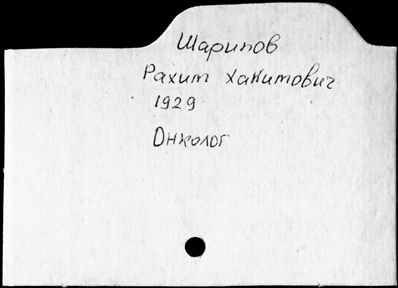 Шарипов
Рахим Хакимович
1929
Онколог